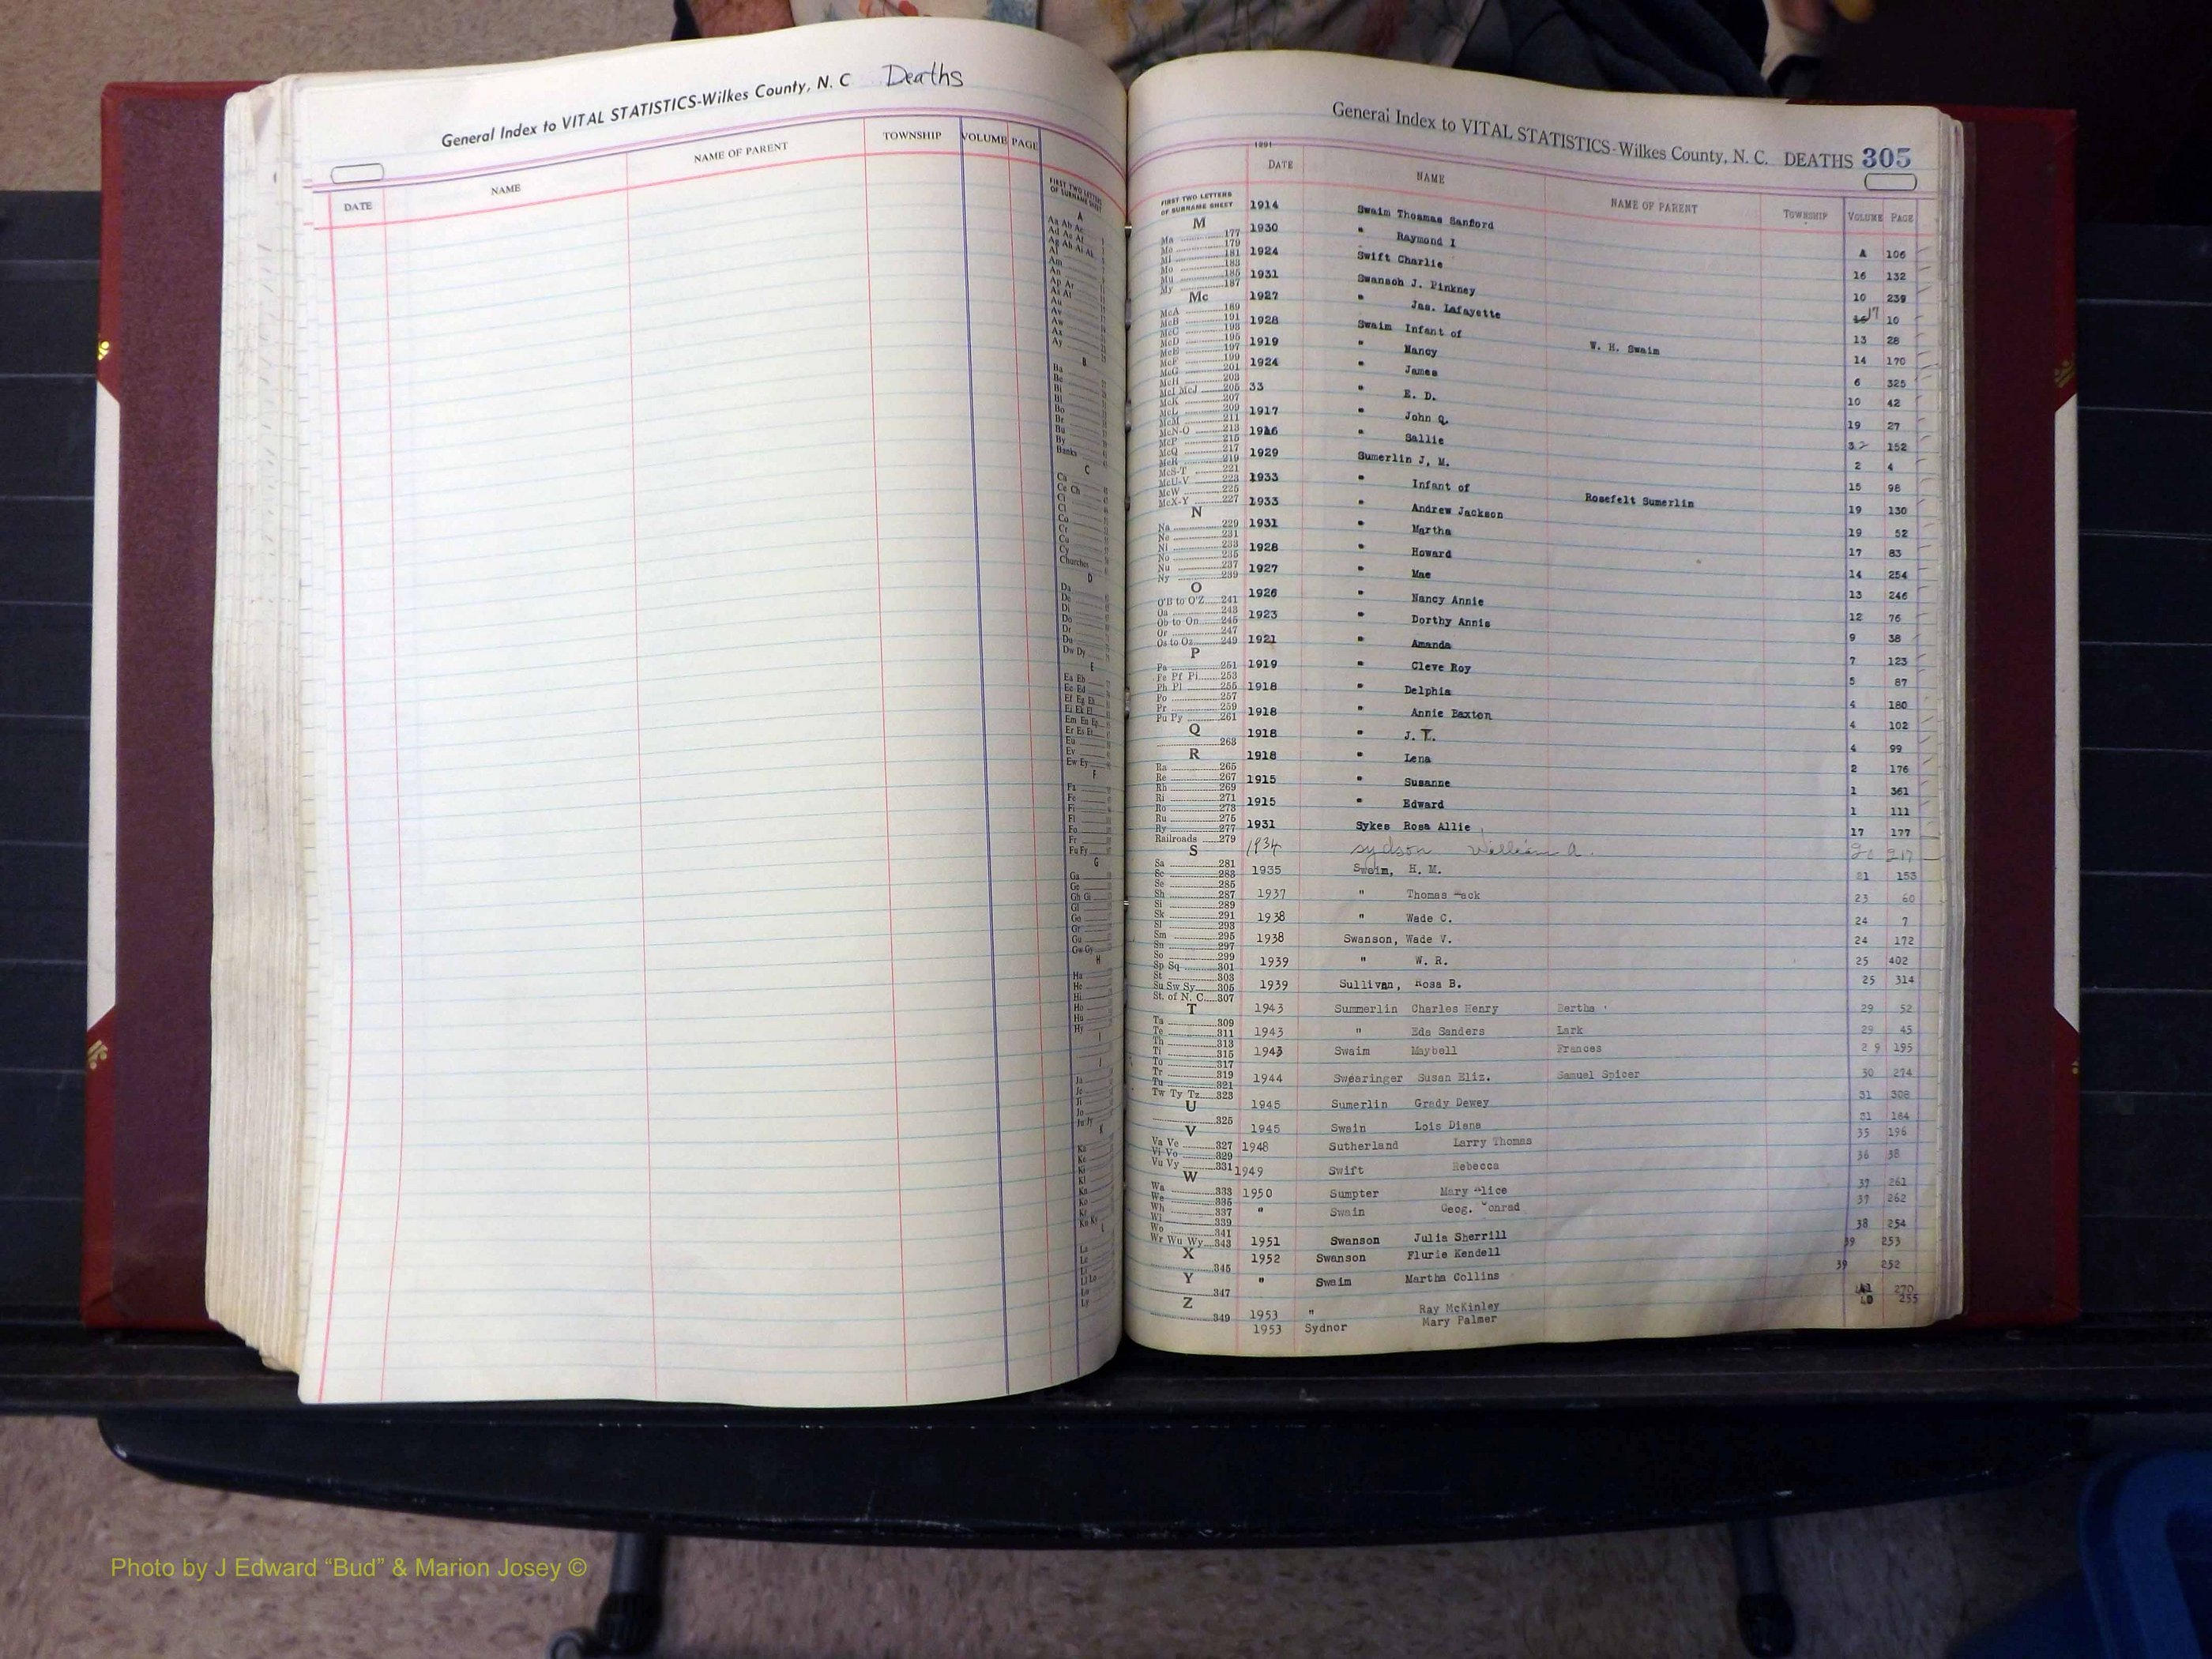 General Index to VITAL STATISTICS-Wilkes County, N. C Deaths
DATE NAME NAME OF PARENT TOWNSHIP VOLUME PAGE
FIRST TWO LETTERS
OF SURNAME SHEET
A
Aa Ab Ac
Ad Ae Af
Ag Ah Ai Ak
Al
Am
An
Ap Ar
As At
Au
Av
Aw
Ax
Ay
B
Ba
Be
Bi
Bl
Bo
Br
Bu
By
Banks
C
Ca
Ce Ch
Ci
Cl
Co
Cr
Cu
Cy
Churches
D
Da
De
Di
Do
Dr
Du
Dw Dy
E
Ea Eb
Ec Ed
Ef Eg Eh
Ei Ek El
Em En Ep
Er Es Et
Eu
Ev
Ew Ey
F
Fa
Fe
Fi
Fl
Fo
Fr
Fu Fy
G
Ga
Ge
Gh Gi
Gl
Go
Gr
Gu
Gw Gy
H
Ha
He
Hi
Ho
Hu
Hy
I
J
Ja
Je
Ji
Jo
Ju Jy
K
Ka
Ke
Ki
Kl
Kn
Ko
Kr
Ku Ky
L
La
Le
Li
Ll Lo
Lu
Ly
General Index to VITAL STATISTICS-Wilkes County, N. C. DEATHS 305
1291
DATE NAME NAME OF PARENT TOWNSHIP VOLUME PAGE
FIRST TWO LETTERS
OF SURNAME SHEET
M
Ma 177
Me 179
Mi 181
Mo 183
Mu 185
My 187
Mc
McA 189
McB 191
McC 193
McD 195
McE 197
McF 199
McG 201
McH 203
McI McJ 205
McK 207
McL 209
McM 211
McN-O 213
McP 215
McQ 217
McR 219
McS-T 221
McU-V 223
McW 225
McX-Y 227
N
Na 229
Ne 231
Ni 233
No 235
Nu 237
Ny 239
O
O'B to O'Z 241
Oa 243
Ob to On 245
Or 247
Os to Oz 249
P
Pa 251
Pe Pf Pi 253
Ph Pl 255
Po 257
Pr 259
Pu Py 261
Q
263
R
Ra 265
Re 267
Rh 269
Ri 271
Ro 273
Ru 275
Ry 277
Railroads 279
S
Sa 281
Sc 283
Se 285
Sh 287
Si 289
Sk 291
Sl 293
Sm 295
Sn 297
So 299
Sp Sq 301
St 303
Su Sw Sy 305
St. of N. C. 307
T
Ta 309
Te 311
Th 313
Ti 315
To 317
Tr 319
Tu 321
Tw Ty Tz 323
U
325
V
Va Ve 327
Vi Vo 329
Vu Vy 331
W
Wa 333
We 335
Wh 337
Wi 339
Wo 341
Wr Wu Wy 343
X
345
Y
347
Z
349
1914 Swaim Thoamas Sanford A 106
1930 " Raymond I 16 132
1924 Swift Charlie 10 239
1931 Swanson J. Pinkney 17 10
1927 " Jas. Lafayette 13 28
1928 Swaim Infant of W. H. Swaim 14 170
1919 " Nancy 6 325
1924 " James 10 42
33 " E. D. 19 27
1917 " John Q. 3 152
1916 " Sallie 2 4
1929 Sumerlin J, M. 15 98
1933 " Infant of Rosefelt Sumerlin 19 130
1933 " Andrew Jackson 19 52
1931 " Martha 17 83
1928 " Howard 14 254
1927 " Mae 13 246
1926 " Nancy Annie 12 76
1923 " Dorthy Annis 9 38
1921 " Amanda 7 123
1919 " Cleve Roy 5 87
1918 " Delphia 4 180
1918 " Annie Baxton 4 102
1918 " J. T. 4 99
1918 " Lena 2 176
1915 " Susanne 1 361
1915 " Edward 1 111
1931 Sykes Rosa Allie 17 177
1934 sydson William A. 20 217
1935 Swaim, H. M. 21 153
1937 " Thomas ack 23 60
1938 " Wade C. 24 7
1938 Swanson, Wade V. 24 172
1939 " W. R. 25 402
1939 Sullivan, Rosa B. 25 314
1943 Summerlin Charles Henry Bertha 29 52
1943 " Eda Sanders Lark 29 45
1943 Swaim Maybell Frances 2 9 195
1944 Swearinger Susan Eliz. Samuel Spicer 30 274
1945 Sumerlin Grady Dewey 31 308
1945 Swain Lois Diana 31 184
1948 Sutherland Larry Thomas 35 196
1949 Swift Rebecca 36 38
1950 Sumpter Mary Alice 37 261
" Swain Geog. Conrad 37 262
1951 Swanson Julia Sherrill 38 254
1952 Swanson Flurie Kendell 39 253
" Swaim Martha Collins 39 252
1953 " Ray McKinley 41 270
1953 Sydnor Mary Palmer 40 255
Photo by J Edward “Bud” & Marion Josey ©